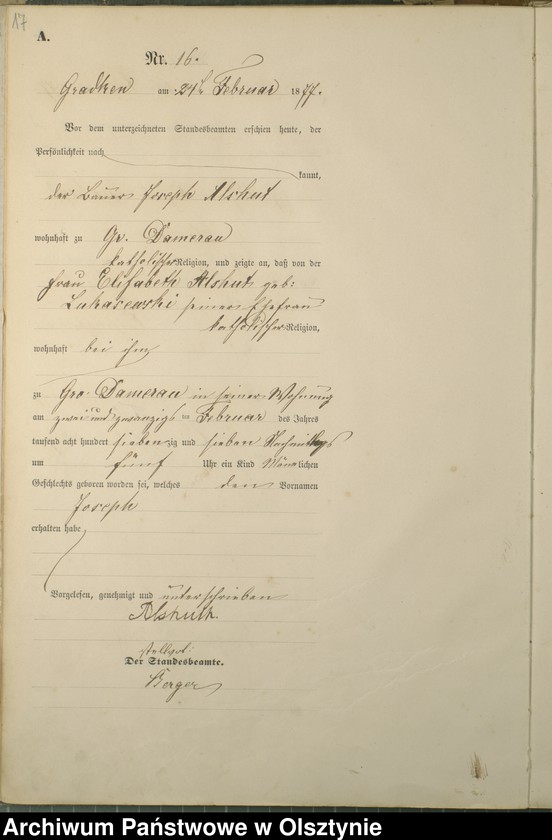 17
A.
Nr. 16.
Gradken am 24t Februar 1877.
Vor dem unterzeichneten Standesbeamten erschien heute, der
Persönlichkeit nach
kannt,
der Bauer Joseph Alshut
wohnhaft zu Gr. Damerau
katholischer Religion, und zeigte an, daß von der
Frau Elisabeth Alshut geb:
Lukasewski seiner Ehefrau
katholischer Religion,
wohnhaft bei ihm
zu Gro. Damerau in seiner Wohnung
am zwei und zwanzigsten Februar des Jahres
tausend acht hundert siebenzig und sieben Nachmittags
um fünf Uhr ein Kind Männlichen
Geschlechts geboren worden sei, welches den Vornamen
Joseph
erhalten habe
Vorgelesen, genehmigt und unterschrieben
Alshuth.
stellvt:
Der Standesbeamte.
Berger
Archiwum Państwowe w Olsztynie